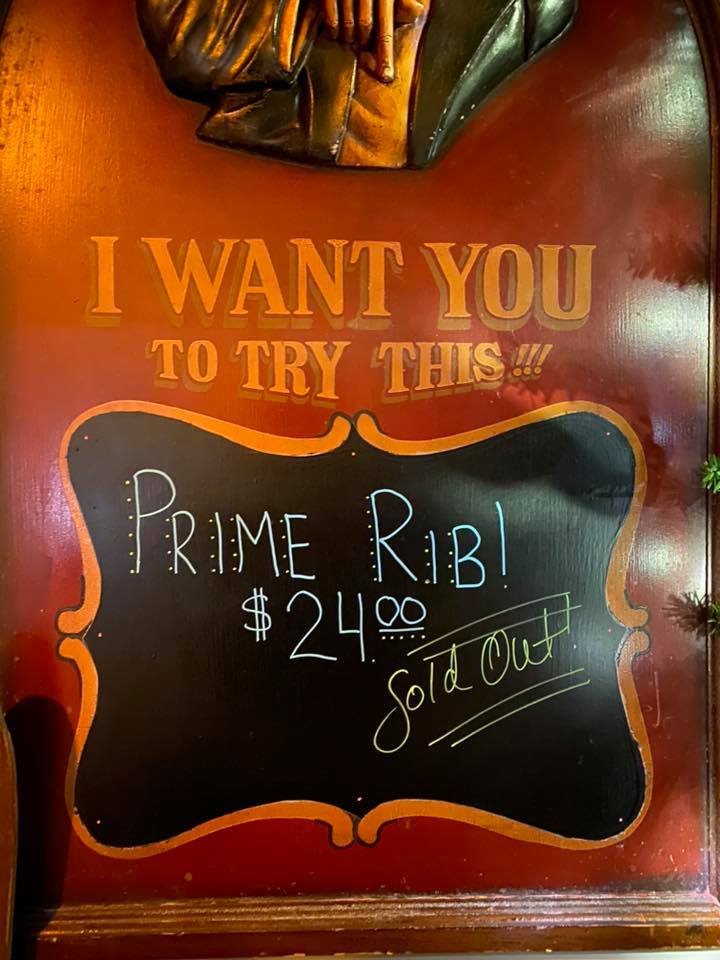 I WANT YOU
TO TRY THIS!!!
PRIME RIB!
$24.00
Sold Out!